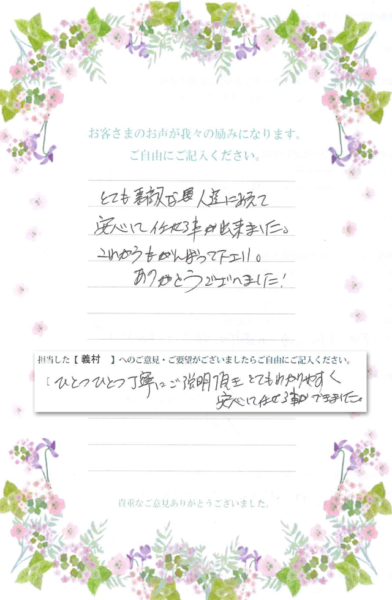 お客さまのお声が我々の励みになります。
ご自由にご記入ください。
とても素敵な
安心して任せる事が出来ました。
これからもがんばって下さい。
ありがとうございました!
担当した【 義村 】へのご意見・ご要望がございましたらご自由にご記入ください。
ひとつひとつ丁寧にご説明頂き とてもわかりやすく
安心して任せる事ができました。
貴重なご意見ありがとうございました。